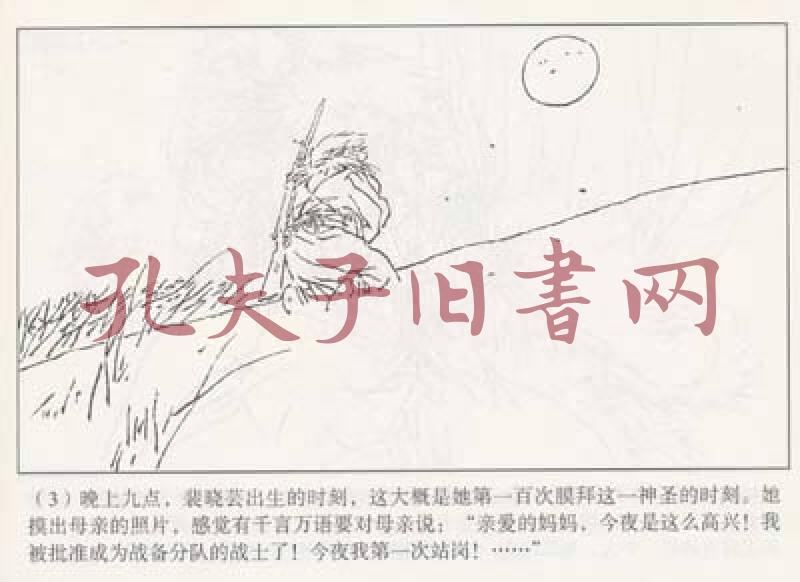 孔夫子旧书网
(3)晚上九点，裴晓芸出生的时刻，这大概是她第一百次膜拜这一神圣的时刻。她
摸出母亲的照片，感觉有千言万语要对母亲说：“亲爱的妈妈，今夜是这么高兴！我
被批准成为战备分队的战士了！今夜我第一次站岗！……”